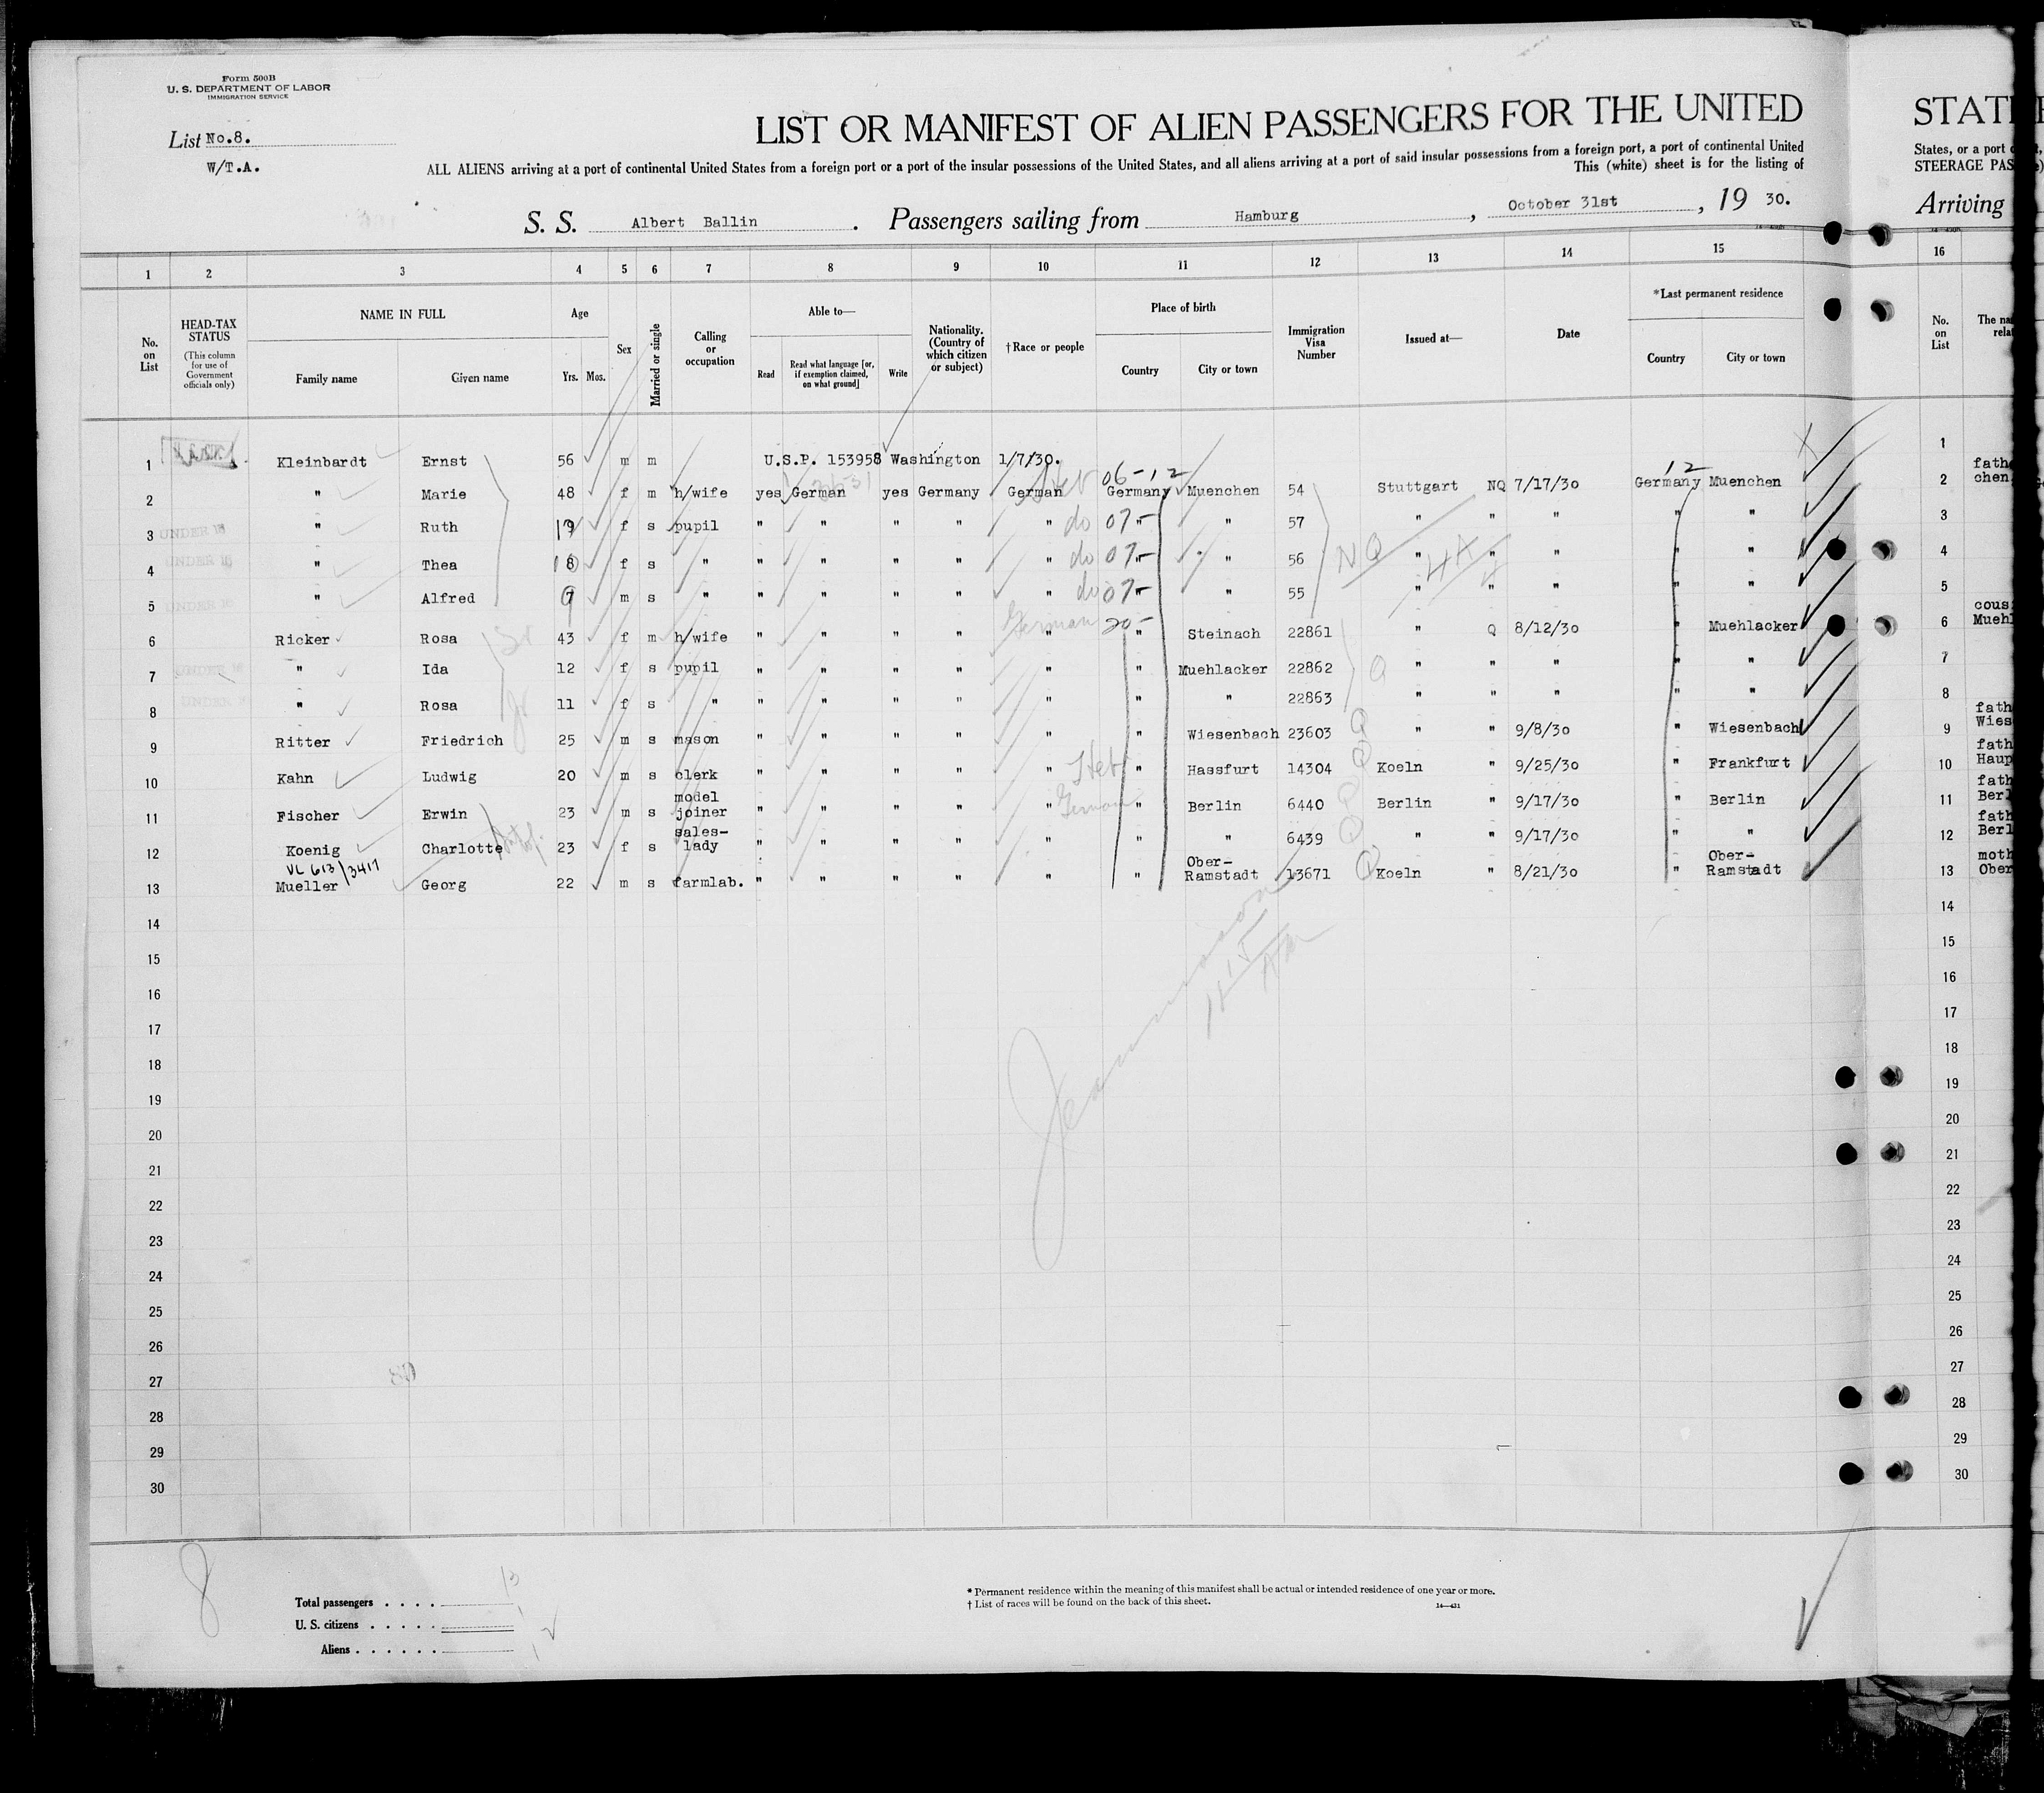 Form 500B
U. S. DEPARTMENT OF LABOR
IMMIGRATION SERVICE
List No.8.
W/T.A.
LIST OR MANIFEST OF ALIEN PASSENGERS FOR THE UNITED
ALL ALIENS arriving at a port of continental United States from a foreign port or a port of the insular possessions of the United States, and all aliens arriving at a port of said insular possessions from a foreign port, a port of continental United
This (white) sheet is for the listing of
S. S. Albert Ballin . Passengers sailing from Hamburg , October 31st , 19 30.
1 2 3 4 5 6 7 8 9 10 11 12 13 14 15
No. on List
HEAD-TAX STATUS
(This column for use of Government officials only)
NAME IN FULL
Family name Given name
Age
Yrs. Mos.
Sex
Married or single
Calling or occupation
Able to—
Read
Read what language [or, if exemption claimed, on what ground]
Write
Nationality. (Country of which citizen or subject)
†Race or people
Place of birth
Country City or town
Immigration Visa Number
Issued at—
Date
*Last permanent residence
Country City or town
1 Kleinbardt Ernst 56 m m U.S.P. 153958 Washington 1/7/30.
06-12 12
2 " Marie 48 f m h/wife yes German yes German​y German Germany Muenchen 54 Stuttgart NQ 7/17/30 Germany Muenchen
3 UNDER 16 " Ruth f s pupil " " " " " do 07- " " 57 " " " " "
4 UNDER 16 " Thea f s " " " " " " do 07- " " 56 NQ " " " " "
5 UNDER 16 " Alfred m s " " " " " " do 07- " " 55 " " " " "
German 20-
6 Ricker Rosa 43 f m h/wife " " " " " " Steinach 22861 " Q 8/12/30 " Muehlacker
7 UNDER 16 " Ida 12 f s pupil " " " " " " Muehlacker 22862 Q " " " " "
8 UNDER " Rosa 11 f s " " " " " " " " 22863 " " " " "
9 Ritter Friedrich 25 m s mason " " " " " " Wiesenbach 23603 Q " " 9/8/30 " Wiesenbach
10 Kahn Ludwig 20 m s clerk " " " " " " Hassfurt 14304 Q Koeln " 9/25/30 " Frankfurt
11 Fischer Erwin 23 m s model joiner " " " " " German " Berlin 6440 Q Berlin " 9/17/30 " Berlin
12 Koenig Charlotte 23 f s sales-lady " " " " " " " 6439 Q " " 9/17/30 " "
VL 613/3417
13 Mueller Georg 22 m s farmlab. " " " " " " Ober-Ramstadt 13671 Q Koeln " 8/21/30 " Ober-Ramstadt
14
15
16
17
18
19
20
21
22
23
24
25
26
27
28
29
30
8
Total passengers . . . . 13
U. S. citizens . . . . . 1
Aliens . . . . . . 12
* Permanent residence within the meaning of this manifest shall be actual or intended residence of one year or more.
† List of races will be found on the back of this sheet.
14—431
STAT
States, or a port
STEERAGE PAS
Arriving
16
No. on List
The
1
2 fath chen
3
4
5
6 cous Muehl
7
8
9 fath Wies
10 fath Haup
11 fath Berl
12 fath Berl
13 moth Ober
14
15
16
17
18
19
20
21
22
23
24
25
26
27
28
29
30